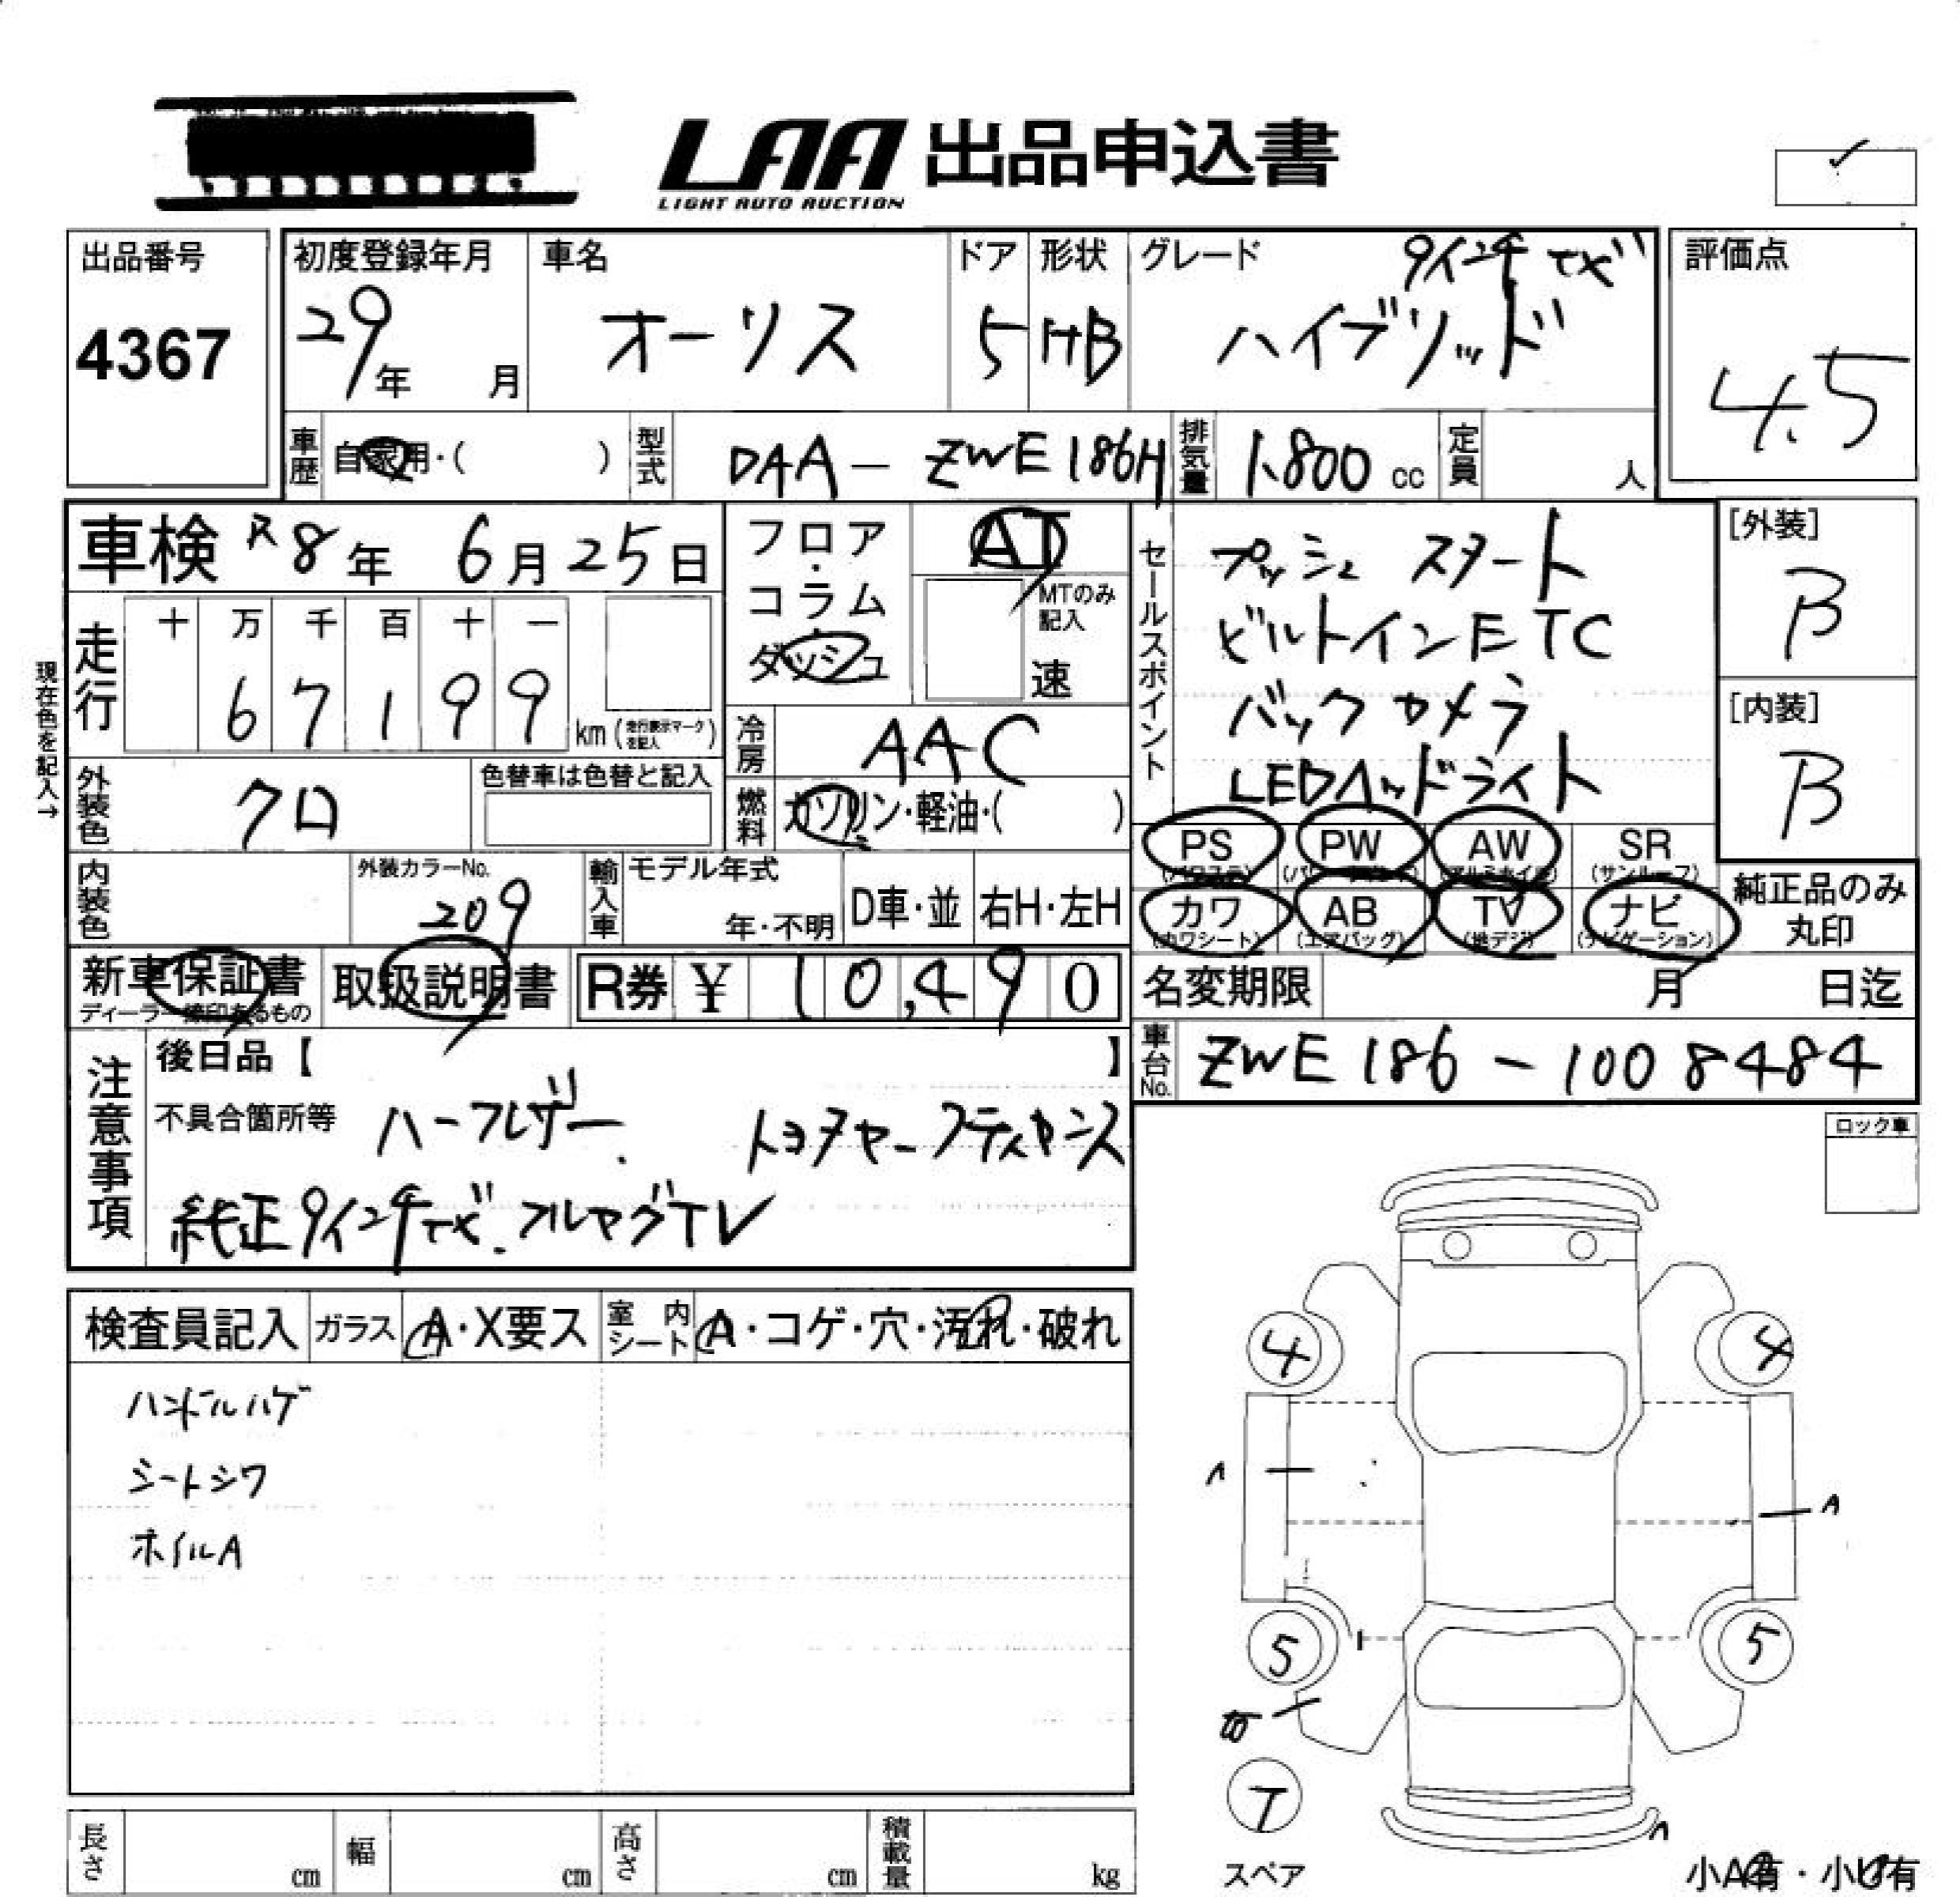 LAA 出品申込書
LIGHT AUTO AUCTION
出品番号
4367
初度登録年月
29年 月
車名
オーリス
ドア
5
形状
HB
グレード
9インチナビ
ハイブリッド
評価点
4.5
車歴 自家用・( )
型式 DAA-ZWE186H
排気量 1.800 cc
定員 人
車検 R8年 6月25日
フロア・コラム・ダッシュ
AT
MTのみ記入
速
セールスポイント
プッシュスタート
ビルトインETC
バックカメラ
LEDヘッドライト
[外装]
B
[内装]
B
現在色を記入→
走行
十 万 千 百 十 一
6 7 1 9 9
km(走行表示マークを記入)
冷房 AAC
外装色 クロ
色替車は色替と記入
燃料 ガソリン・軽油・( )
PS (パワステ)
PW
AW (アルミホイル)
SR (サンルーフ)
内装色
外装カラーNo.
209
輸入車 モデル年式
年・不明
D車・並
右H・左H
カワ (カワシート)
AB (エアバッグ)
TV (地デジ)
ナビ (ナビゲーション)
純正品のみ丸印
新車保証書
ディーラー捺印あるもの
取扱説明書
R券 ¥ 10,490
名変期限 月 日迄
車台No. ZWE186-1008484
注意事項
後日品【 】
不具合箇所等 ハーフレザー. トヨタチャーフティセンス
純正9インチナビ.フルセグTV
ロック車
検査員記入
ガラス A・X要ス
室内シート A・コゲ・穴・汚れ・破れ
ハンドルハゲ
シートシワ
ホイルA
4 4
A
A
5 5
T
スペア
A
小A有・小U有
長さ cm
幅 cm
高さ cm
積載量 kg